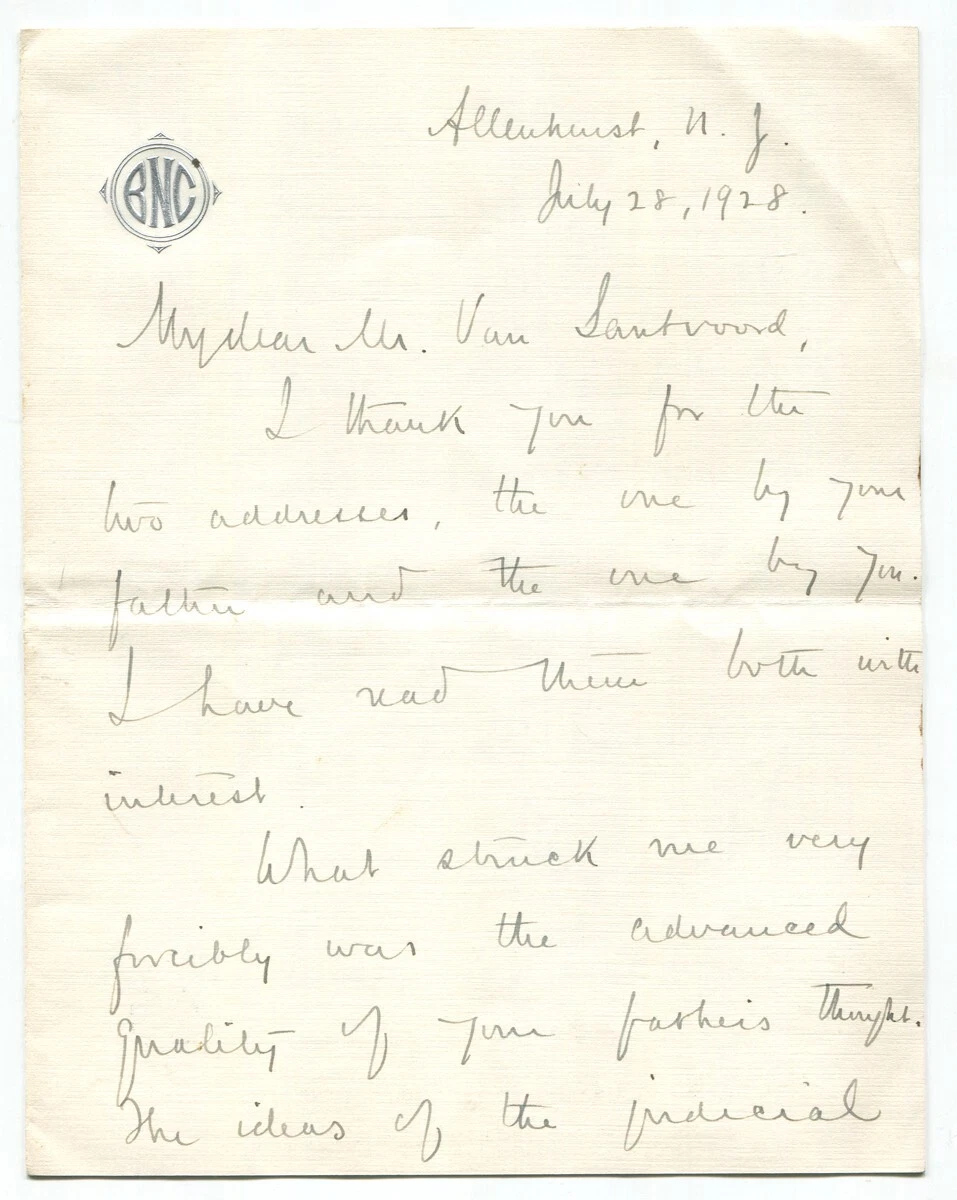 BNC
Allenhurst, N. J.
July 28, 1928.
My dear Mr. Van Santvoord,
I thank you for the
two addresses, the one by your
father and the one by you.
I have read them both with
interest.
What struck me very
forcibly was the advanced
quality of your father's thought.
The ideas of the judicial